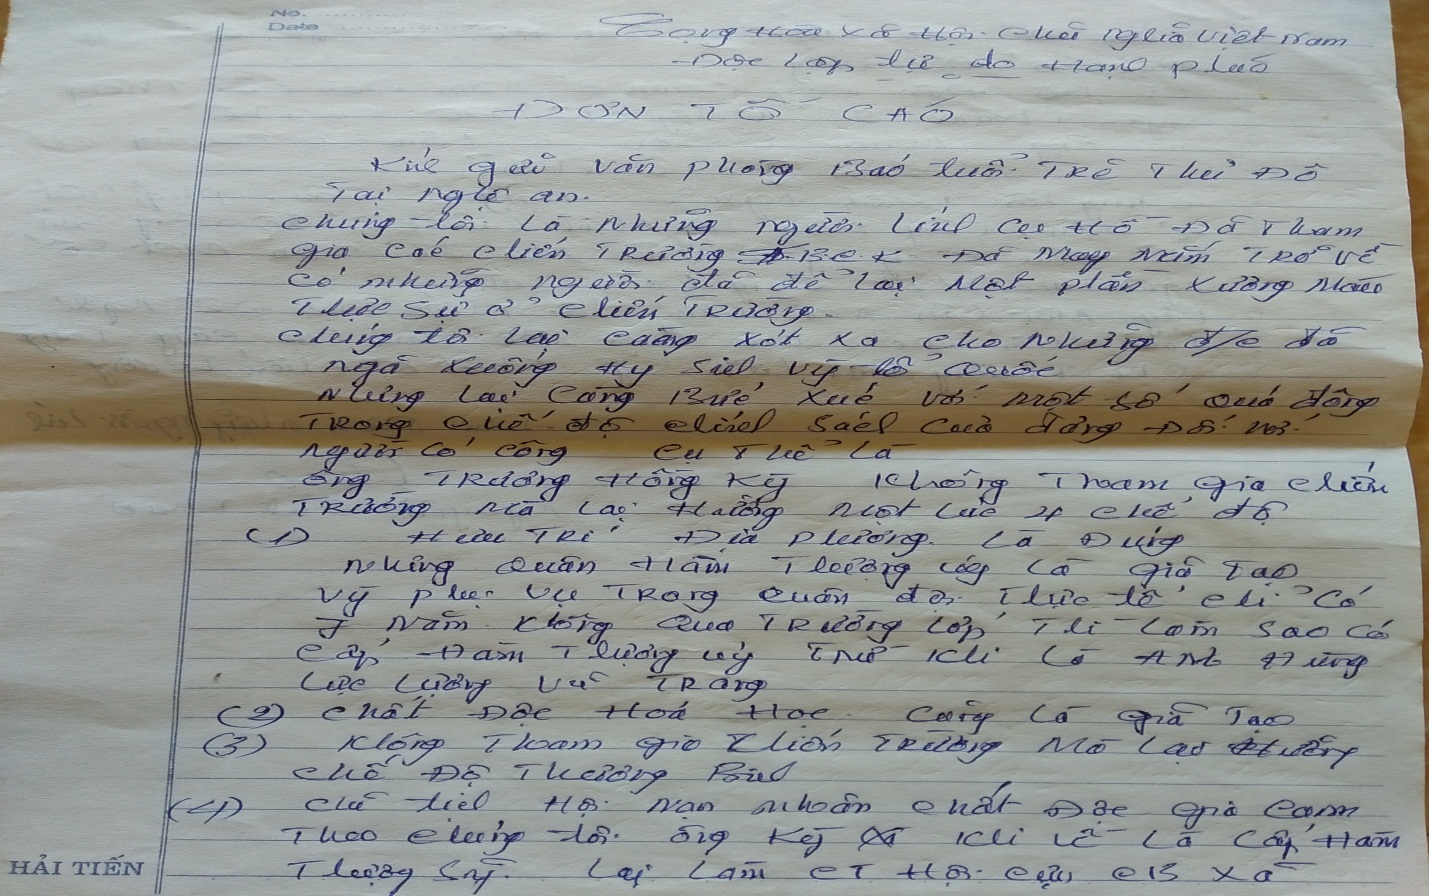 No.
Date
Cộng Hòa Xã Hội Chủ Nghĩa Việt Nam
Độc Lập Tự do Hạnh phúc
ĐƠN TỐ CÁO
Kính gửi Văn phòng Báo tuổi Trẻ Thủ Đô
Tại nghệ an.
chúng tôi Là những người Lính Cụ Hồ Đã Tham
gia Các chiến Trường B C K Đã May mắn Trở về
Có những người đã để lại Một phần xương Máu
Thực Sự ở chiến Trường.
chúng tôi lại càng xót xa cho những đ/c đã
ngã xuống Hy sinh vì tổ quốc
nhưng Lại Càng Bức xúc với một số quá đông
Trong chế độ chính sách của đảng Đối với
người có công cụ Thể Là
ông Trương Hồng Kỳ không Tham gia chiến
Trường mà Lại Hưởng một Lúc 4 chế độ
(1) Hưu Trí Địa phương. Là Đúng
nhưng quân Hàm Thượng úy Là giả Tạo
vì phục vụ Trong quân đội Thực tế chỉ có
7 năm không qua Trường Lớp Thì Làm sao có
Cấp Hàm Thượng úy Trừ khi Là Anh Hùng
Lực Lượng Vũ Trang
(2) chất Độc Hoá Học cũng Là giả Tạo
(3) không Tham gia chiến Trường mà Lại Hưởng
chế Độ Thương Binh
(4) chủ tịch Hội nạn nhân chất Độc gia cam
Theo chúng tôi ông Kỳ khi về Là Cấp Hàm
Thượng Sỹ. Lại Làm CT Hội cựu CB xã
HẢI TIẾN